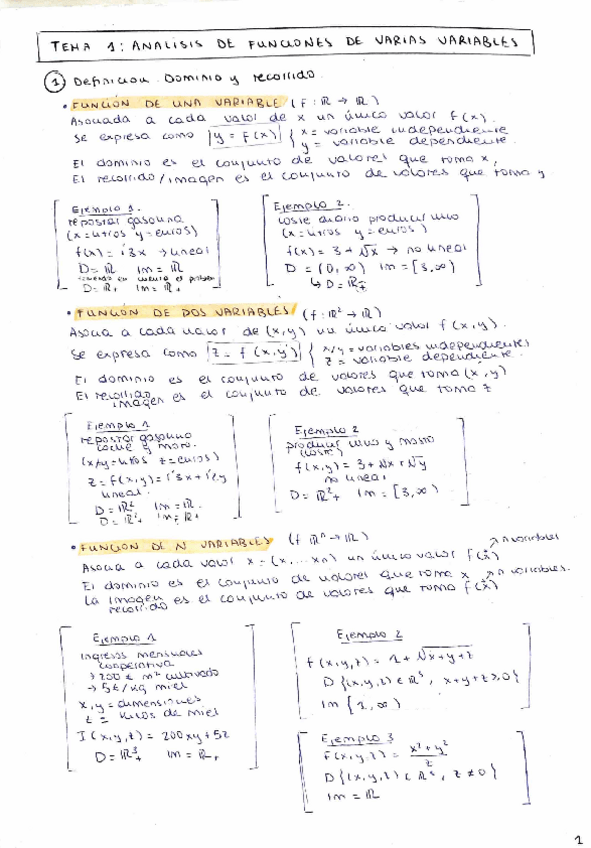 TEMA 1: ANALISIS DE FUNCIONES DE VARIAS VARIABLES
1 Definicion. Dominio y recorrido.
• FUNCIÓN DE UNA VARIABLE (f: ℝ → ℝ)
Asociada a cada valor de x un único valor f(x).
Se expresa como y = f(x) { x = variable independiente
y = variable dependiente.
El dominio es el conjunto de valores que toma x,
El recorrido/imagen es el conjunto de valores que toma y
Ejemplo 1.
repostar gasolina
(x=litros y=euros)
f(x) = 1'3x → lineal
D = ℝ Im = ℝ
teniendo en cuenta el
D = ℝ+ Im = ℝ+
Ejemplo 2.
coste diario producir vino
(x=litros y=euros)
f(x) = 3 + √x → no lineal
D = (0, ∞) Im = [3, ∞)
↳ D = ℝ+
• FUNCIÓN DE DOS VARIABLES (f: ℝ² → ℝ)
Asocia a cada valor de (x,y) un único valor f(x,y).
Se expresa como z = f(x,y) { x/y = variables independientes
z = variable dependiente.
El dominio es el conjunto de valores que toma (x,y)
El recorrido imagen es el conjunto de valores que toma z
Ejemplo 1
repostar gasolina
coche y moto.
(x/y=litros z=euros)
z = f(x,y) = 1'3x + 1'2y
lineal.
D = ℝ² Im = ℝ
D = ℝ²+ Im = ℝ+
Ejemplo 2
producir vino y mosto
(coste)
f(x,y) = 3 + √x + √y
no lineal
D = ℝ²+ Im = [3, ∞)
• FUNCION DE N VARIABLES (f ℝⁿ → ℝ)
↗ n variables
Asocia a cada valor x = (x, ... xn) un único valor f(x)
El dominio es el conjunto de valores que toma x ↗ n variables.
La imagen recorrido es el conjunto de valores que toma f(x)
Ejemplo 1
Ingresos mensuales
cooperativa
→ 200 € m² cultivado
→ 5€/kg miel
x, y = dimensiones
z = kilos de miel
I(x,y,z) = 200xy + 5z
D = ℝ³+ Im = ℝ+
Ejemplo 2
f(x,y,z) = 1 + √x+y+z
D {(x,y,z) ∈ ℝ³, x+y+z ≥ 0}
Im [1, ∞)
Ejemplo 3
f(x,y,z) = x²+y² / z
D {(x,y,z) ∈ ℝ³, z ≠ 0}
Im = ℝ
1